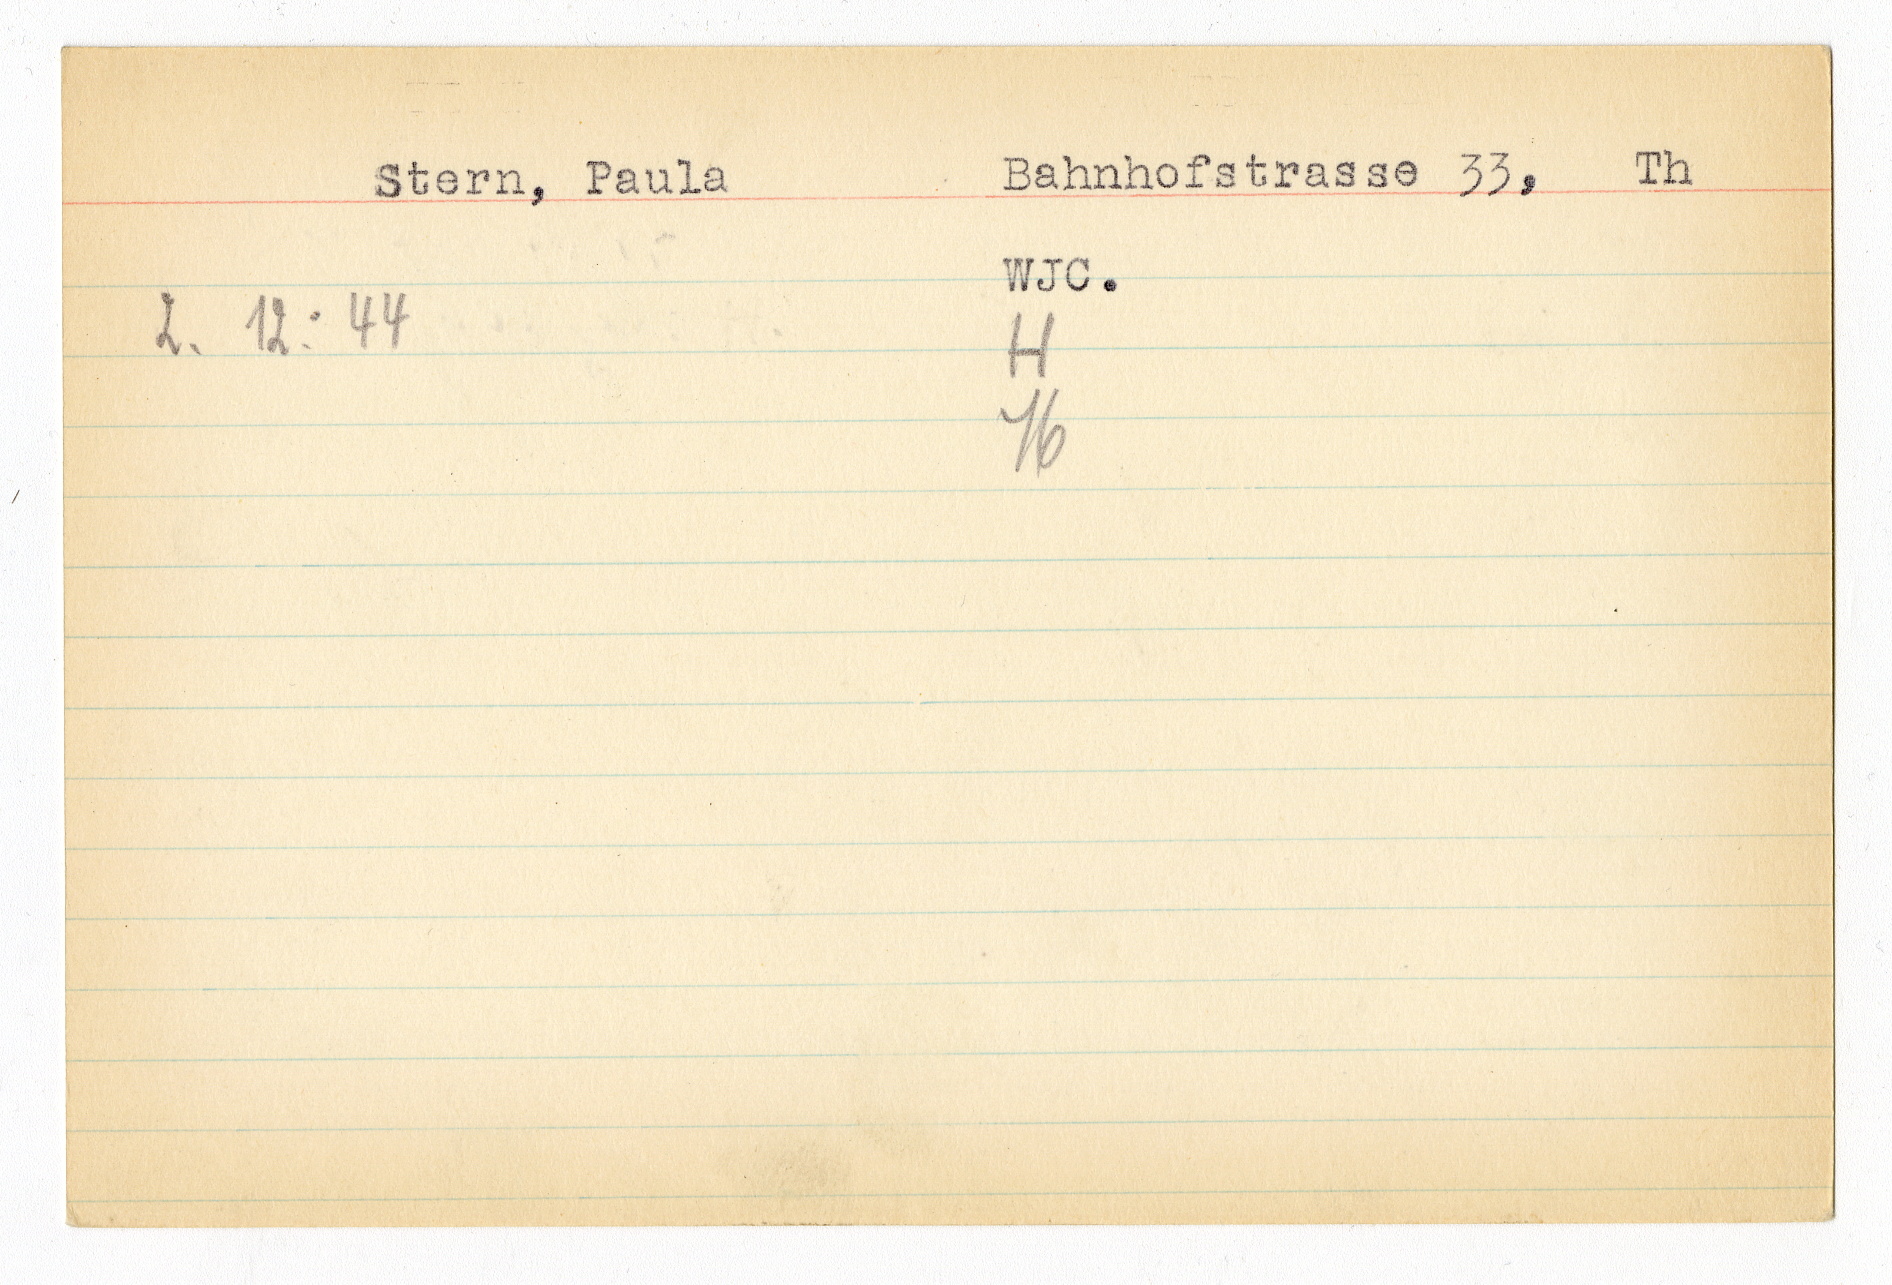 Stern, Paula Bahnhofstrasse 33, Th
WJC.
2. 12. 44
H